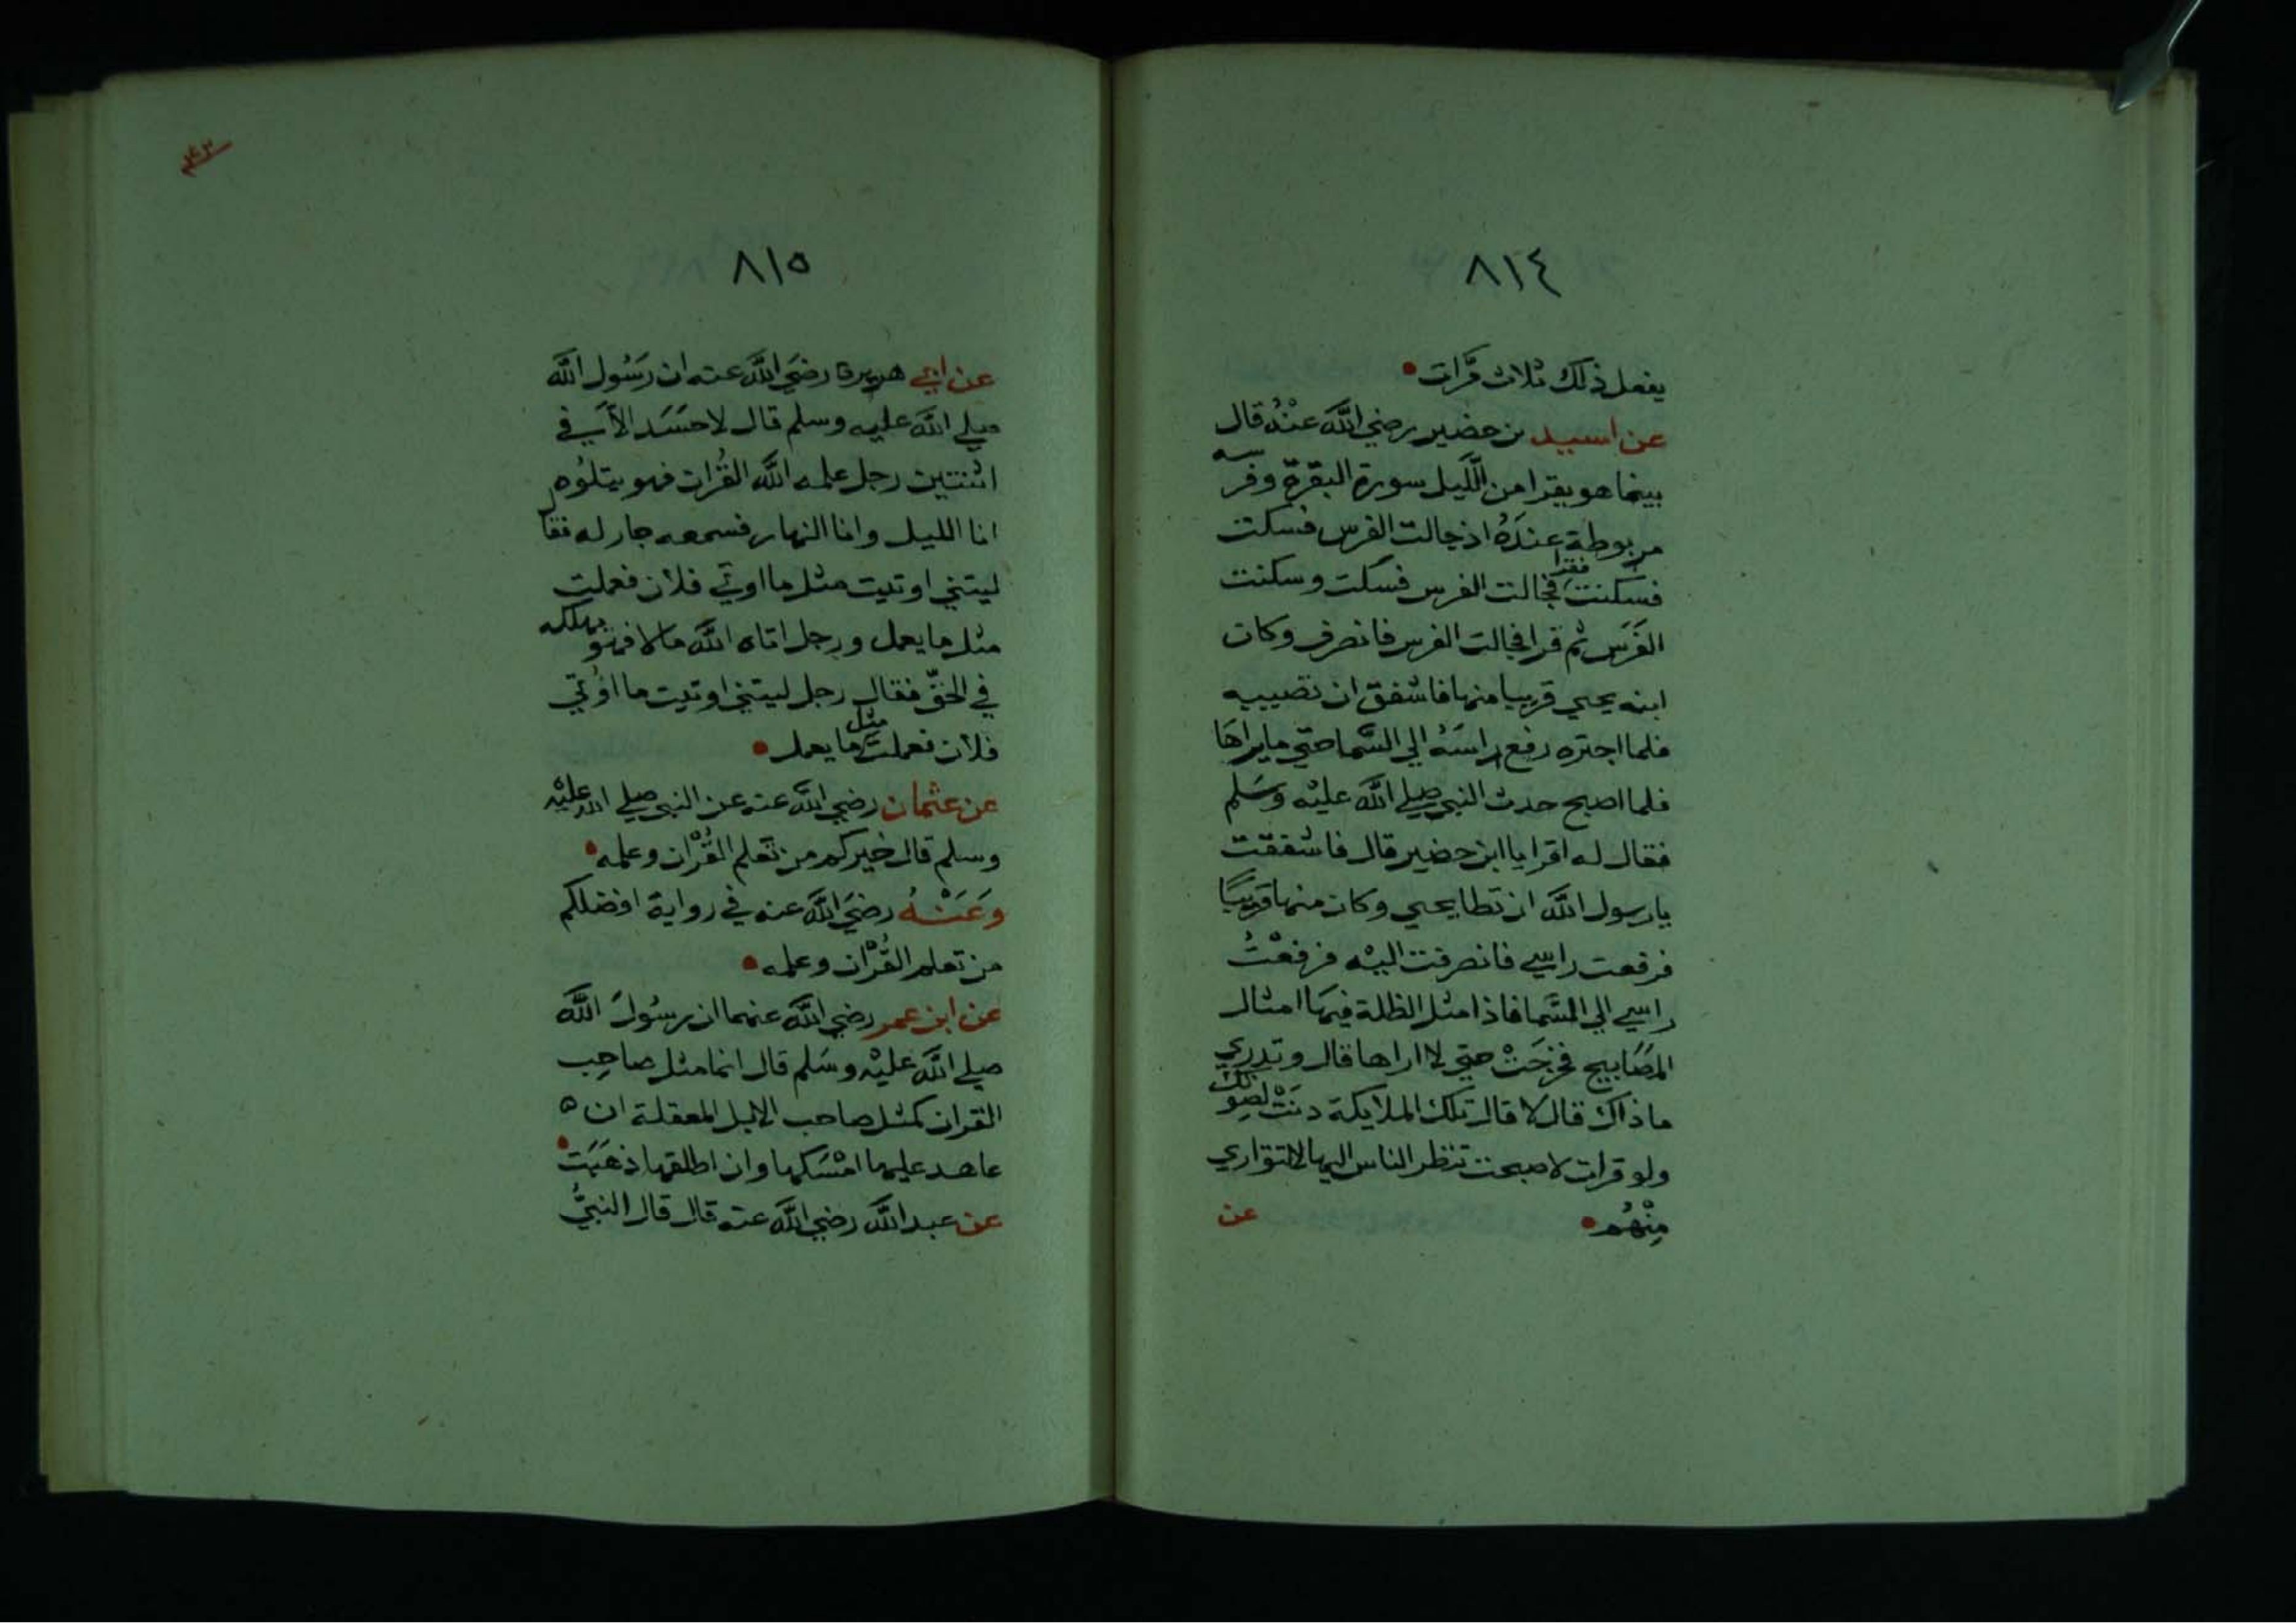 ٨١٤
يفعل ذلك ثلاث مرات
عن اسيد بن حضير رضي الله عنه قال
بينما هو يقرا من الليل سورة البقرة وفرسه
مربوطة عنده اذ جالت الفرس فسكت
فسكنت فقرا فجالت الفرس فسكت وسكنت
الفرس ثم قرا فجالت الفرس فانصرف وكان
ابنه يحيي قريبا منها فاشفق ان تصيبه
فلما اجتره رفع راسه الي السما حتي ما يراها
فلما اصبح حدث النبي صلي الله عليه وسلم
فقال له اقرا يا ابن حضير قال فاشفقت
يا رسول الله ان تطا يحيي وكان منها قريبا
فرفعت راسي فانصرفت اليه فرفعت
راسي الي السما فاذا مثل الظلة فيها امثال
المصابيح فخرجت حتي لا اراها قال وتدري
ما ذاك قال لا قال تلك الملايكة دنت لصوتك
ولو قرات لاصبحت تنظر الناس اليها لا تتواري
منهم عن
٨١٥
عن ابي هريرة رضي الله عنه ان رسول الله
صلي الله عليه وسلم قال لا حسد الا في
اثنتين رجل علمه الله القران فهو يتلوه
انا الليل وانا النهار فسمعه جار له فقال
ليتني اوتيت مثل ما اوتي فلان فعملت
مثل ما يعمل ورجل اتاه الله مالا فهو يهلكه
في الحق فقال رجل ليتني اوتيت ما اوتي
فلان فعملت مثل ما يعمل
عن عثمان رضي الله عنه عن النبي صلي الله عليه
وسلم قال خيركم من تعلم القران وعلمه
وعنه رضي الله عنه في رواية افضلكم
من تعلم القران وعلمه
عن ابن عمر رضي الله عنهما ان رسول الله
صلي الله عليه وسلم قال انما مثل صاحب
القران كمثل صاحب الابل المعقلة ان ه
عاهد عليها امسكها وان اطلقها ذهبت
عن عبد الله رضي الله عنه قال قال النبي